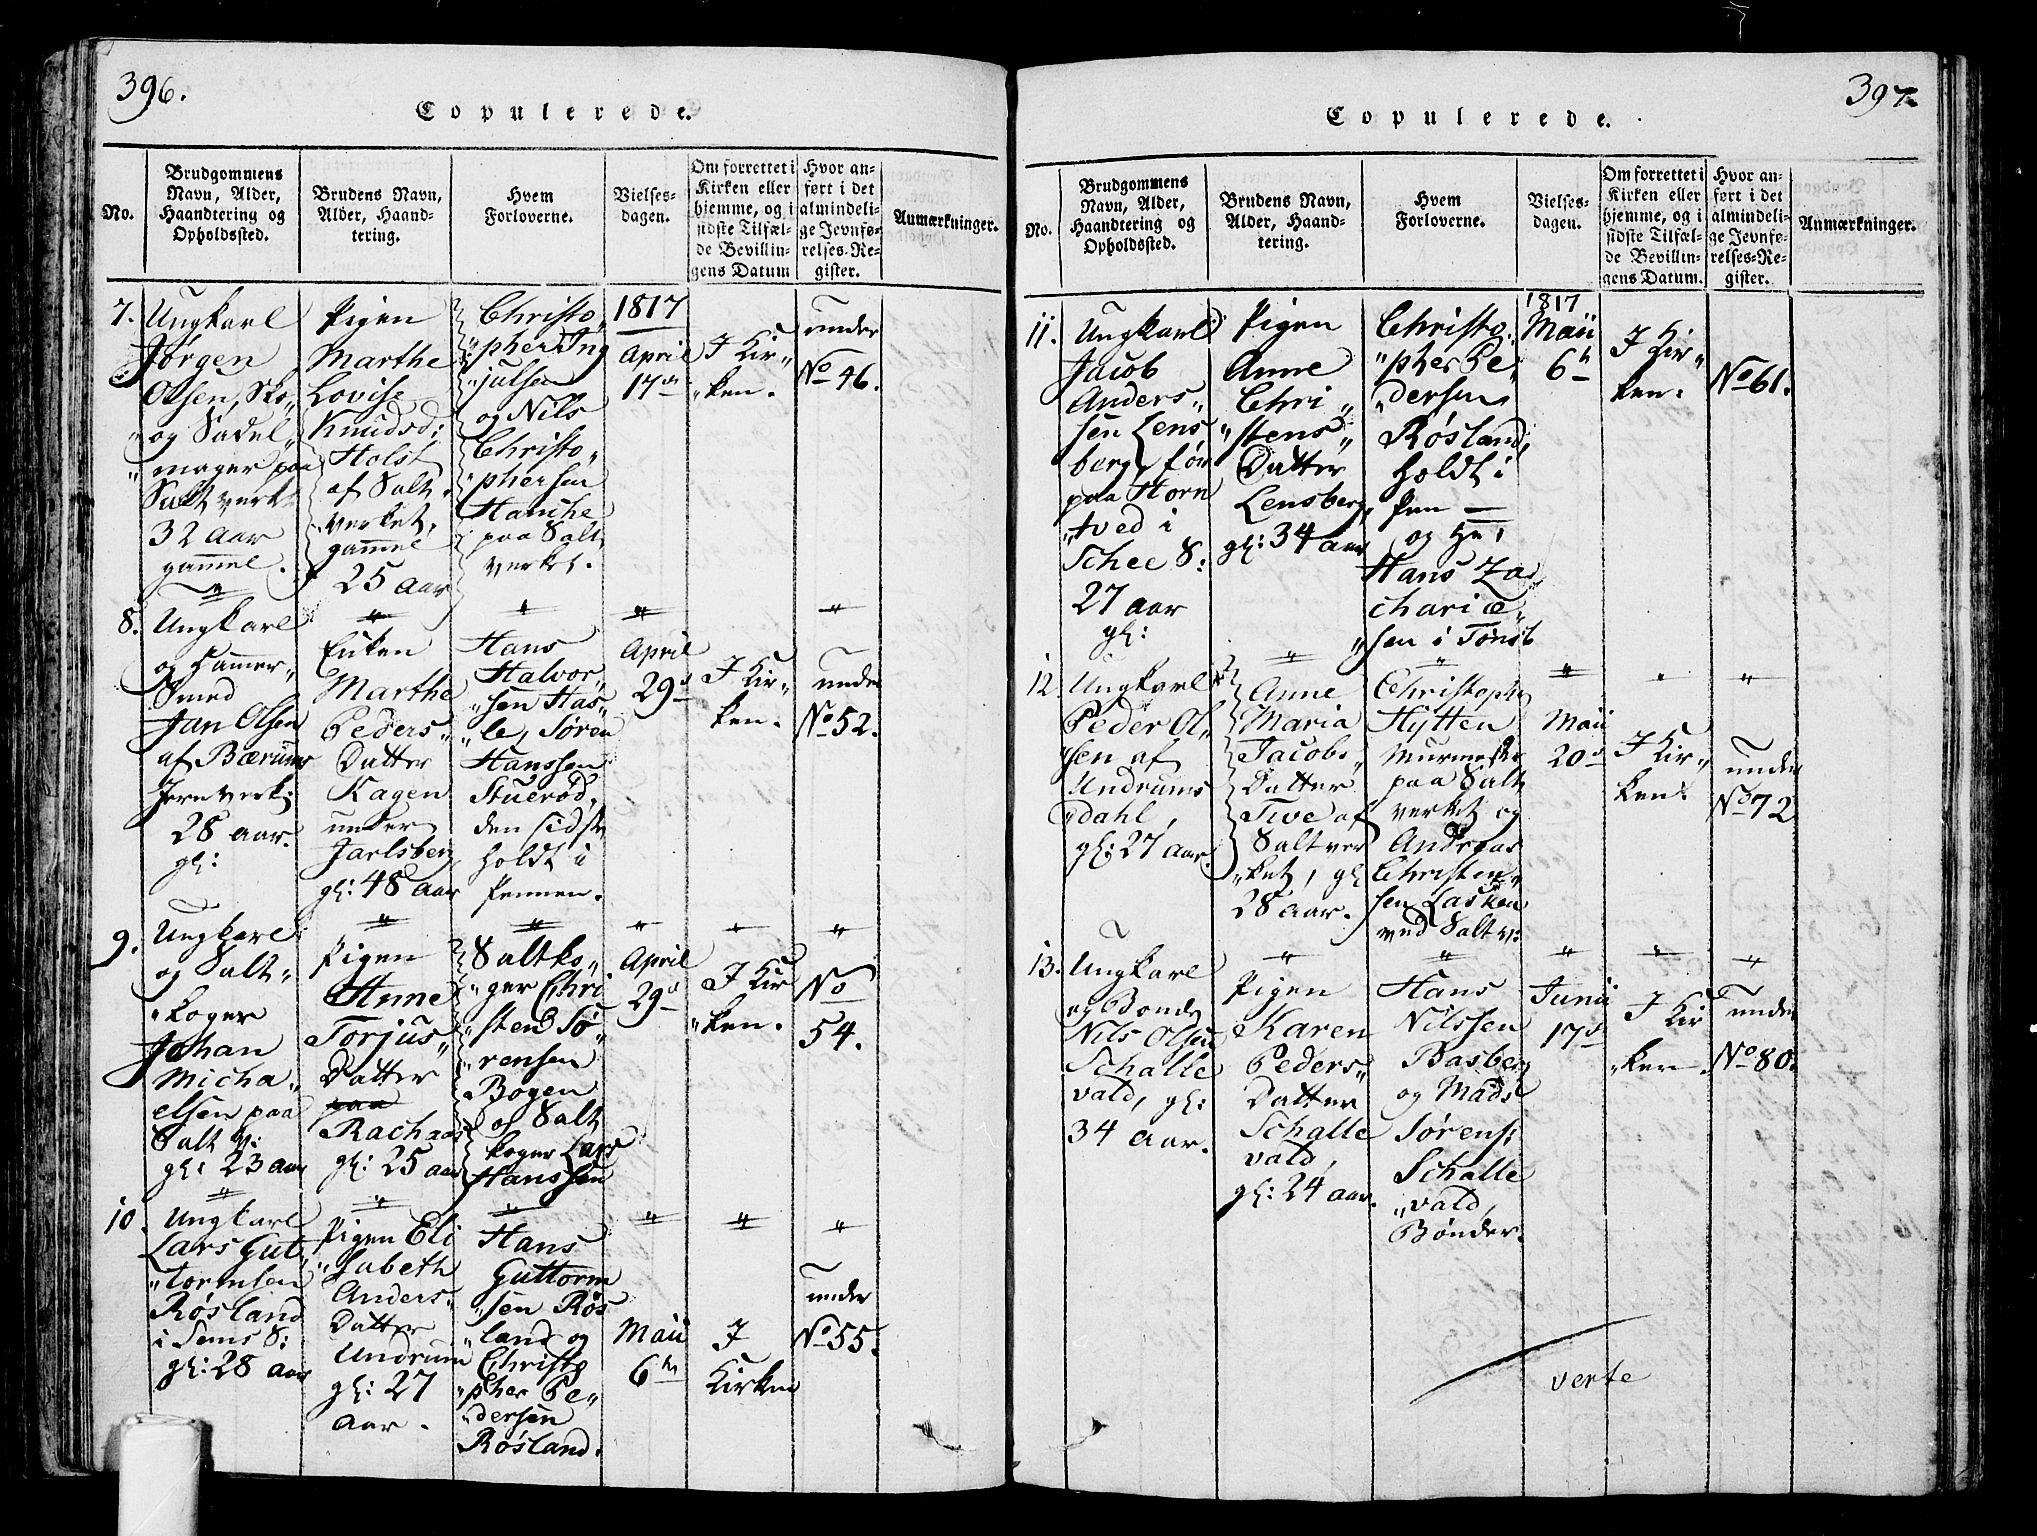 396.
Copulerede.
No.
Brudgommens
Navn, Alder,
Haandtering og
Opholdssted.
Brudens Navn,
Alder, Haand-
tering.
Hvem
Forloverne.
Vielses-
dagen.
Om forrettet i
Kirken eller
hjemme, og i
sidste Tilfæl-
de Bevillin-
gens Datum
Hvor an-
ført i det
almindeli-
ge Jevnfø-
relses-Re-
gister.
Anmærkninger.
7.
Ungkarl
Jørgen
Olsen, Sko„
„og Sadel„
„mager paa
Saltverkt
32 aar
gammel.
Pigen
Marthe
Lovise
Knudsd:
Holst
af Salt„
verket,
gammel
25 aar
Christo„
„pher Ing
„julsen
og Nils
Christo„
„phersen
Hauche
paa Salt
verket.
1817
April
17de
I Kir„
„ken.
under
No 46.
8.
Ungkarl
og Hammer„
Smed
Jan Olsen
af Bærums
Jernverk:
28 aar.
gl:
Enken
Marthe
Peders„
Datter
Kagen
under
Jarlsberg
gl: 48 aar
Hans
Halvor„
„sen Has„
„le, Søren
Hanssen
Stuerød,
den sidste
holdt i
Pennen.
April
29de
I Kir„
ken.
under
No 52.
9.
Ungkarl
og Salt„
„koger
Johan
Micha„
elsen paa
Salt v:
gl: 23 aar
Pigen
Anne
Torjus„
Datter
paa
Rachaas
gl: 25 aar
Saltko„
„ger Chri
„sten Sø„
„rensen
Bogen
og Salt
koger Lars
Hanssen
April
29de
I Kir
„ken.
No
54.
10.
Ungkarl
Lars Gut„
„tormsen
Røsland
i Sems S:
gl: 28 aar
Pigen Eli
„sabeth
Anders„
Datter
Undrum
gl: 27
Aar.
Hans
Guttorm
„sen Røs
„land og
Christo
„pher Pe„
„dersen
Røsland.
Maii
6te
I
Kirken
under
No 55.
397.
Copulerede.
No.
Brudgommens
Navn, Alder,
Haandtering og
Opholdssted.
Brudens Navn,
Alder, Haand-
tering.
Hvem
Forloverne.
Vielses-
dagen.
Om forrettet i
Kirken eller
hjemme, og i
sidste Tilfæl-
de Bevillin-
gens Datum.
Hvor an-
ført i det
almindeli-
ge Jevnfø-
relses-Re-
gister.
Anmærkninger.
11.
Ungkarl
Jacob
Anders„
sen Lens
berg, før
paa Horn
„tved i
Schee S:
27 aar
gl:
Pigen
Anne
Chri„
„stens„
Datter
Lensberg,
gl: 34 aar
Christo„
„pher Pe„
„dersen
Røsland,
holdt i
Pen
og Hr,
Hans Za„
chariæ„
„sen i Tønsb
1817
Maii
6te
I Kir„
ken.
No 61.
12
Ungkarl
Peder Ol„
„sen af
Undrums
„dahl,
gl: 27 aar.
Anne
Maria
Jacobs„
Datter
Tive af
Saltver
„ket, gl
28 aar.
Christophr
Hytten
Murmester
paa Salt
verket og
Andreas
Christen„
sen Lasken
ved Salt v:
Maii
20de
I Kir„
ken.
under
No 72
13.
Ungkarl
og Bonde
Nils Olsen
Schalle
vald, gl:
34 aar.
Pigen
Karen
Peders„
Datter
Schalle
vald,
gl: 24 aar.
Hans
Nilssen
Basberg
og Mads
Sørens:
Schalle
„vald,
Bønder.
Junii
17de
I Kir
„ken.
under
No 80.
verte